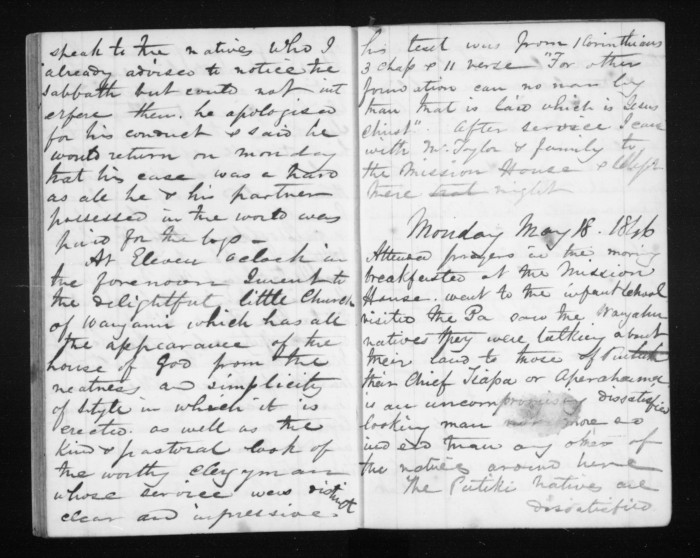 speak to the natives who I
already advised to notice the
Sabbath but could not int
erfere them. he apologised
for his conduct & said he
would return on monday
that his case was a hard
as all he & his partner
possessed in the world was
paid for the logs -
At Eleven oclock in
the forenoon I went to
the delightful little Church
of Wanganui which has all
the appearance of the
house of God from the
neatness and simplicity
of style in which it is
erected. as well as the
kind & pastoral look of
the worthy clergyman
whose service was distinct
clear and impressive.
his text was from 1 Corinthians
3 chap & 11 verse "For other
foundation can no man lay
than that is laid which is Jesus
Christ". After service I came
with Mr Taylor & family to
the Mission House & slept
there that night
Monday May 18. 1846
Attened prayers in the morning
breakfasted at the Mission
House. went to the infant School
visited the Pa saw the
natives they were talking about
their land to those of
their Chief or
is an uncompromising dissatisfied
looking man more so
ind eed than any other of
the natives around here
The Putiki natives are
dissatisfied